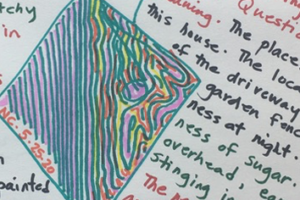 tchy
in
NC. 5.25.20
painted
Questio
this house. The place
The loca
of the driveway
garden fence
ness at night.
ness of sugar.
overhead, ea
Stinging in
The m